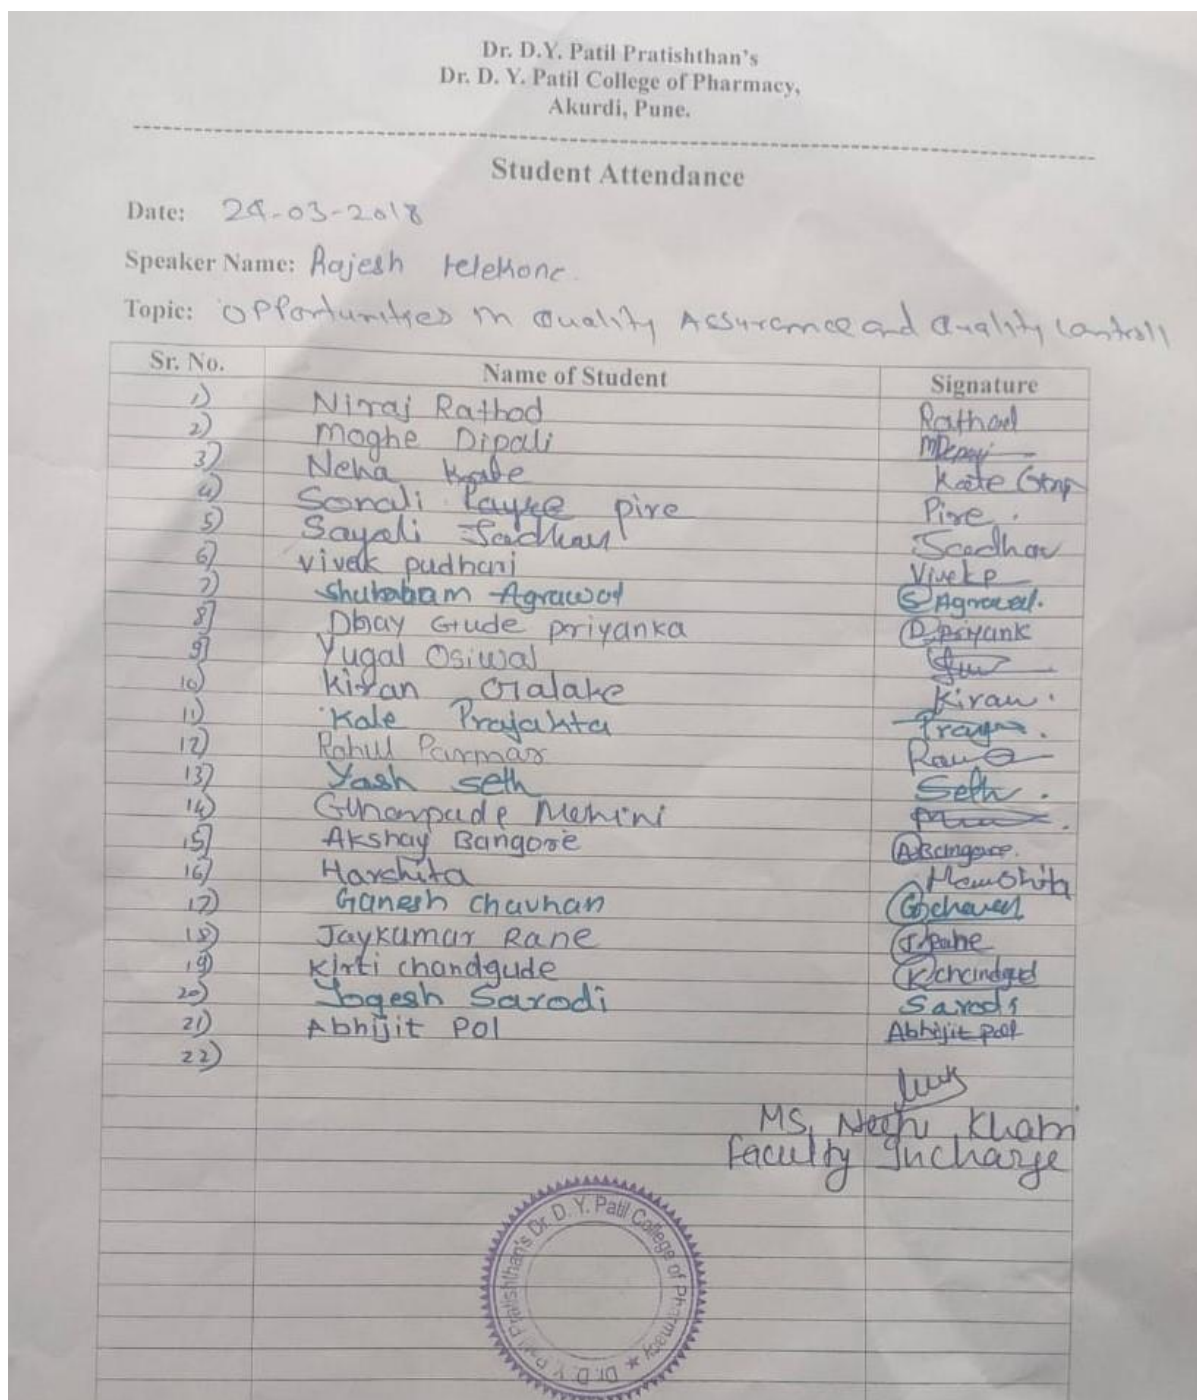 Dr. D.Y. Patil Pratishthan's
Dr. D. Y. Patil College of Pharmacy,
Akurdi, Pune.
Student Attendance
Date: 24-03-2018
Speaker Name: Rajesh
Topic: Opportunities in Quality Assurance and Quality Controll
Sr. No. Name of Student Signature
1) Niraj Rathod Rathod
2) Moghe Dipali
3) Neha Kate Kate
4) Sonali pire Pire.
5) Sayali Jadhav Jadhav
6) vivek pudhari VivekP
7) Shubham Agrawal S Agrawal.
8) Dhay Gude priyanka D. priyank
9) Yugal Osiwal
10) Kiran Galake Kiran.
11) Kale Prajakta
12) Rahul Parmar
13) Yash Seth Seth.
14) Ghonpade Mehini
15) Akshay Bangore A Bangore.
16) Harshita Harshita
17) Ganesh Chavhan G chavan
18) Jaykumar Rane J. Rane
19) Kirti chandgude K chandgud
20) Yogesh Sarodi Sarodi
21) Abhijit Pol Abhijit pol
22)
MS.
Faculty Incharge
Dr. D. Y. Patil Pratishthan's Dr. D. Y. Patil College of Pharmacy